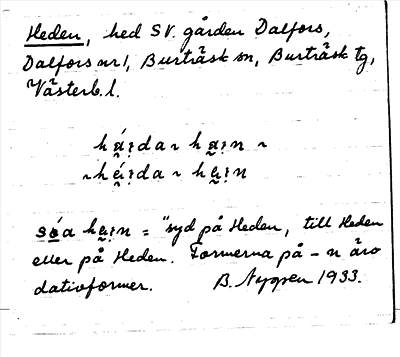 Heden, hed SV. gården Dalfors,
Dalfors nr 1, Burträsk sn, Burträsk tg,
Västerb. l.
sǫ́a = "syd på Heden, till Heden
eller på Heden. Formerna på -n äro
dativformer. B. Nygren 1933.